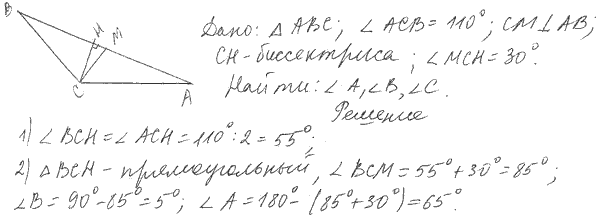 B
H
M
C
A
Дано: △ ABC; ∠ ACB = 110°; CM ⊥ AB;
CH - биссектриса; ∠ MCH = 30°.
Найти: ∠ A, ∠ B, ∠ C.
Решение
1) ∠ BCH = ∠ ACH = 110° : 2 = 55°;
2) △ BCH - прямоугольный, ∠ BCM = 55° + 30° = 85°;
∠ B = 90° - 85° = 5°; ∠ A = 180° - (85° + 30°) = 65°.